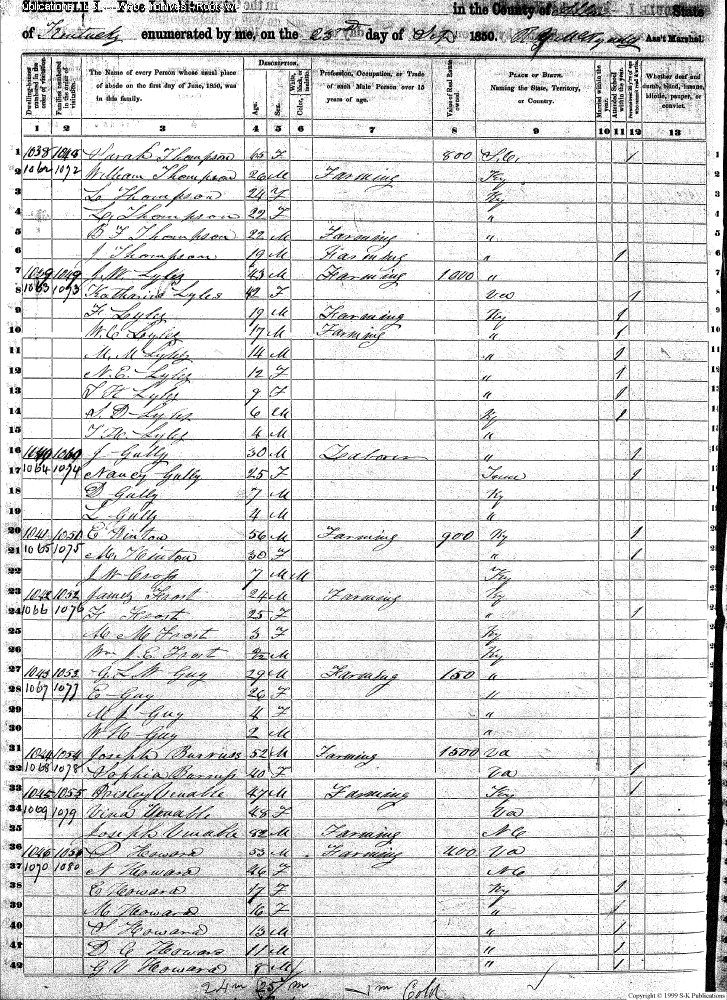 in the County of State
of Kentucky enumerated by me, on the 23d day of Sept 1850. Ass't Marshal.
Dwelling-houses numbered in the order of visitation.
Families numbered in the order of visitation.
The Name of every Person whose usual place of abode on the first day of June, 1850, was in this family.
Description.
Age.
Sex.
Color, White, black, or mulatto.
Profession, Occupation, or Trade of each Male Person over 15 years of age.
Value of Real Estate owned.
Place of Birth. Naming the State, Territory, or Country.
Married within the year.
Attended School within the year.
Whether deaf and dumb, blind, insane, idiotic, pauper, or convict.
1 2 3 4 5 6 7 8 9 10 11 12 13
1 1038 1048 Sarah Thompson 65 F 800 S.C. 1 1
2 1062 1072 William Thompson 26 M Farming Ky 2
3 L Thompson 24 F Ky 3
4 L Thompson 22 F " 4
5 B F Thompson 22 M Farming " 5
6 J Thompson 19 M Farming " 1 6
7 1039 1049 J. W. Lyles 43 M Farming 1000 " 7
8 1063 1073 Katharine Lyles 42 F Va 1 8
9 F Lyles 19 M Farming Ky 1 9
10 W. C. Lyles 17 M Farming " 1 10
11 M. M Lyles 14 M " 1 11
12 N. E. Lyles 12 F " 1 12
13 S H Lyles 9 F " 1 13
14 S. D Lyles 6 M Ky 1 14
15 T. H. Lyles 4 M " 15
16 1040 1050 J Gully 30 M Laborer " 1 16
17 1064 1074 Nancy Gully 25 F Tenn 1 17
18 D Gully 7 M Ky 18
19 L Gully 4 M " 19
20 1041 1051 E Hinton 56 M Farming 900 Ky 1 20
21 1065 1075 M. Hinton 30 F " 1 21
22 J W Cross 7 M M Ky 22
23 1042 1052 James Frost 24 M Farming Ky 23
24 1066 1076 F Frost 25 F " 1 24
25 M M Frost 3 F Ky 25
26 Wm J. E. Frost M Ky 26
27 1043 1053 G. L. W Guy 29 M Farming 150 " 27
28 1067 1077 E Guy 26 F " 28
29 M J Guy 4 F " 29
30 W H Guy 2 M " 30
31 1044 1054 Joseph Burruss 52 M Farming 1500 Va 31
32 1068 1078 Sophia Burruss 40 F Va 1 32
33 1045 1055 Presley Venable 47 M Farming Ky 1 33
34 1069 1079 Vina Venable 48 F Va 34
35 Joseph Venable 82 M Farming N C 35
36 1046 1056 D Howard 53 M Farming 400 Va 36
37 1070 1080 N Howard 46 F N C 37
38 E Howard 17 F Ky 1 38
39 M Howard 16 F " 39
40 S Howard 13 M " 1 40
41 D A Howard 11 M " 1 41
42 G V Howard 8 M " 1 42
24 m 1 m Cold
Copyright © 1999 S-K Publications